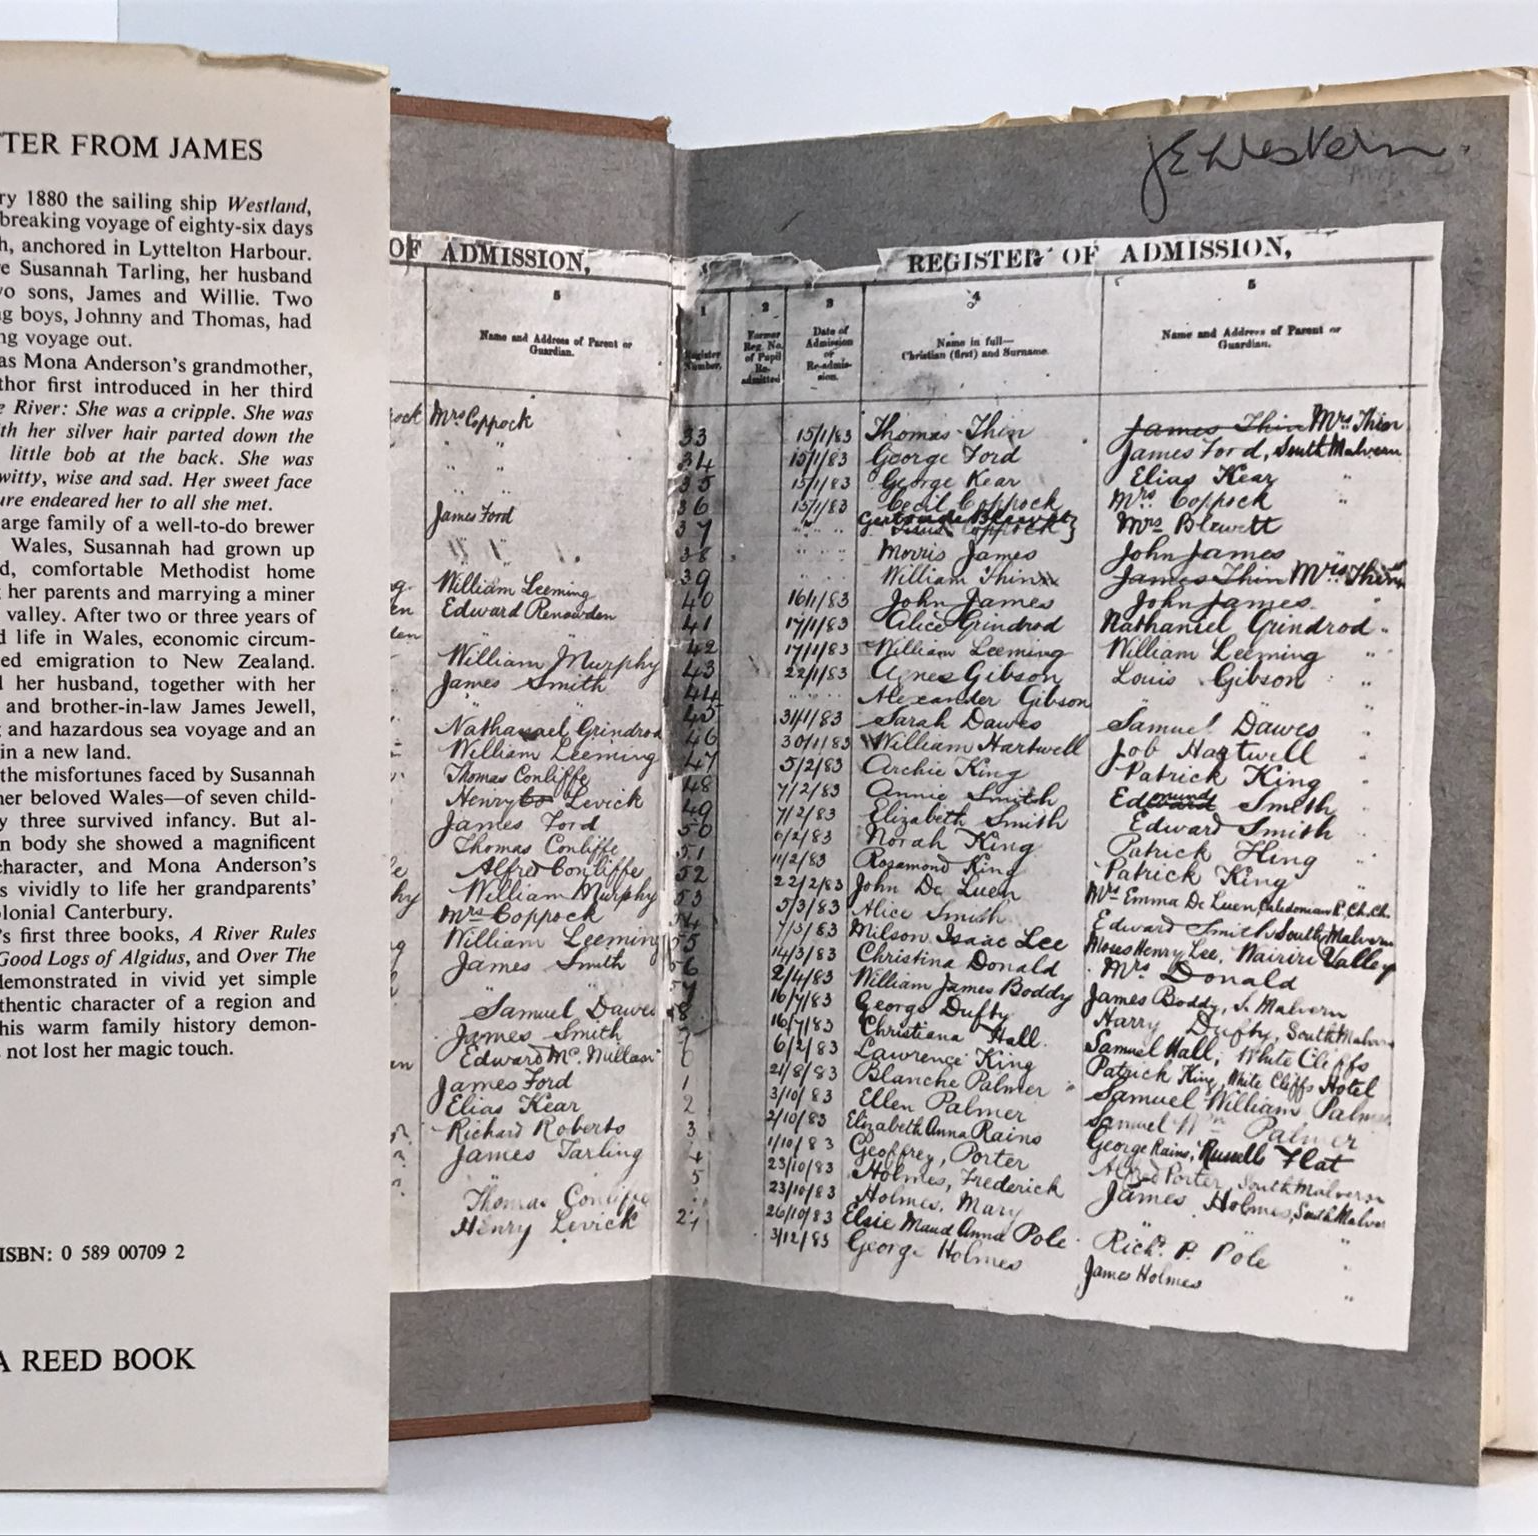 TTER FROM JAMES
ry 1880 the sailing ship Westland,
breaking voyage of eighty-six days
h, anchored in Lyttelton Harbour.
e Susannah Tarling, her husband
vo sons, James and Willie. Two
ng boys, Johnny and Thomas, had
ng voyage out.
as Mona Anderson's grandmother,
thor first introduced in her third
e River: She was a cripple. She was
ith her silver hair parted down the
little bob at the back. She was
witty, wise and sad. Her sweet face
ure endeared her to all she met.
arge family of a well-to-do brewer
Wales, Susannah had grown up
d, comfortable Methodist home
g her parents and marrying a miner
valley. After two or three years of
d life in Wales, economic circum-
ed emigration to New Zealand.
d her husband, together with her
and brother-in-law James Jewell,
g and hazardous sea voyage and an
in a new land.
the misfortunes faced by Susannah
her beloved Wales—of seven child-
y three survived infancy. But al-
n body she showed a magnificent
character, and Mona Anderson's
s vividly to life her grandparents'
olonial Canterbury.
's first three books, A River Rules
Good Logs of Algidus, and Over The
demonstrated in vivid yet simple
thentic character of a region and
his warm family history demon-
not lost her magic touch.
ISBN: 0 589 00709 2
A REED BOOK
OF ADMISSION,
5
Name and Address of Parent or
Guardian.
ock Mrs Coppock
" "
" "
" "
James Ford
" " "
g. William Leeming
en Edward Renowden
den "
William Murphy
James Smith
"
Nathanael Grindrod
William Leeming
Thomas Conliffe
Henry Levick
James Ford
Thomas Conliffe
Alfred Conliffe
hy William Murphy
Mrs Coppock
g William Leeming
James Smith
"
Samuel Dawes
James Smith
en Edward Mc Millan
James Ford
Elias Kear
Richard Roberts
James Tarling
"
Thomas Conliffe
Henry Levick
J E Western.
REGISTER OF ADMISSION,
1 2 3 4 5
Register Number. Former Reg. No. of Pupil Re-admitted Date of Admission or Re-admission. Name in full— Christian (first) and Surname. Name and Address of Parent or Guardian.
33 15/1/83 Thomas Thin James Thin Mrs Thin
34 15/1/83 George Ford James Ford, South Malvern
35 15/1/83 George Kear Elias Kear "
36 15/1/83 Cecil Coppock Mrs Coppock "
37 " " " Gertrude Blewett Coppock } Mrs Blewett
38 " " " Morris James John James
39 " " " William Thin James Thin Mrs Thin
40 16/1/83 John James John James "
41 17/1/83 Alice Grindrod Nathaniel Grindrod "
42 17/1/83 William Leeming William Leeming "
43 22/1/83 Agnes Gibson Louis Gibson "
44 " " " Alexander Gibson "
45 31/1/83 Sarah Dawes Samuel Dawes "
46 30/1/83 William Hartwell Job Hartwell "
47 5/2/83 Archie King Patrick King "
48 7/2/83 Annie Smith Edmund Smith
49 7/2/83 Elizabeth Smith Edward Smith "
50 6/2/83 Norah King Patrick King "
51 11/2/83 Rosamond King Patrick King "
52 22/2/83 John De Luen Mrs Emma De Luen, Caledonian R, Ch.Ch.
53 5/3/83 Alice Smith Edward Smith South Malvern
54 7/3/83 Milson Isaac Lee Moses Henry Lee, Wairiri Valley
55 14/3/83 Christina Donald Mrs Donald
56 2/4/83 William James Boddy James Boddy, S. Malvern
57 16/7/83 George Dufty Harry Dufty, South Malvern
8 16/7/83 Christiana Hall. Samuel Hall, White Cliffs
6/2/83 Lawrence King Patrick King, White Cliffs Hotel
21/8/83 Blanche Palmer Samuel William Palmer
1 3/10/83 Ellen Palmer Samuel Wm Palmer
2 2/10/83 Elizabeth Anna Rains George Rains, Russells Flat
3 1/10/83 Geoffrey, Porter Alfred Porter, South Malvern
4 23/10/83 Holmes, Frederick James Holmes, South Malvern
5 23/10/83 Holmes, Mary " "
26/10/83 Elsie Maud Anna Pole Richd. P. Pole
3/12/83 George Holmes James Holmes "